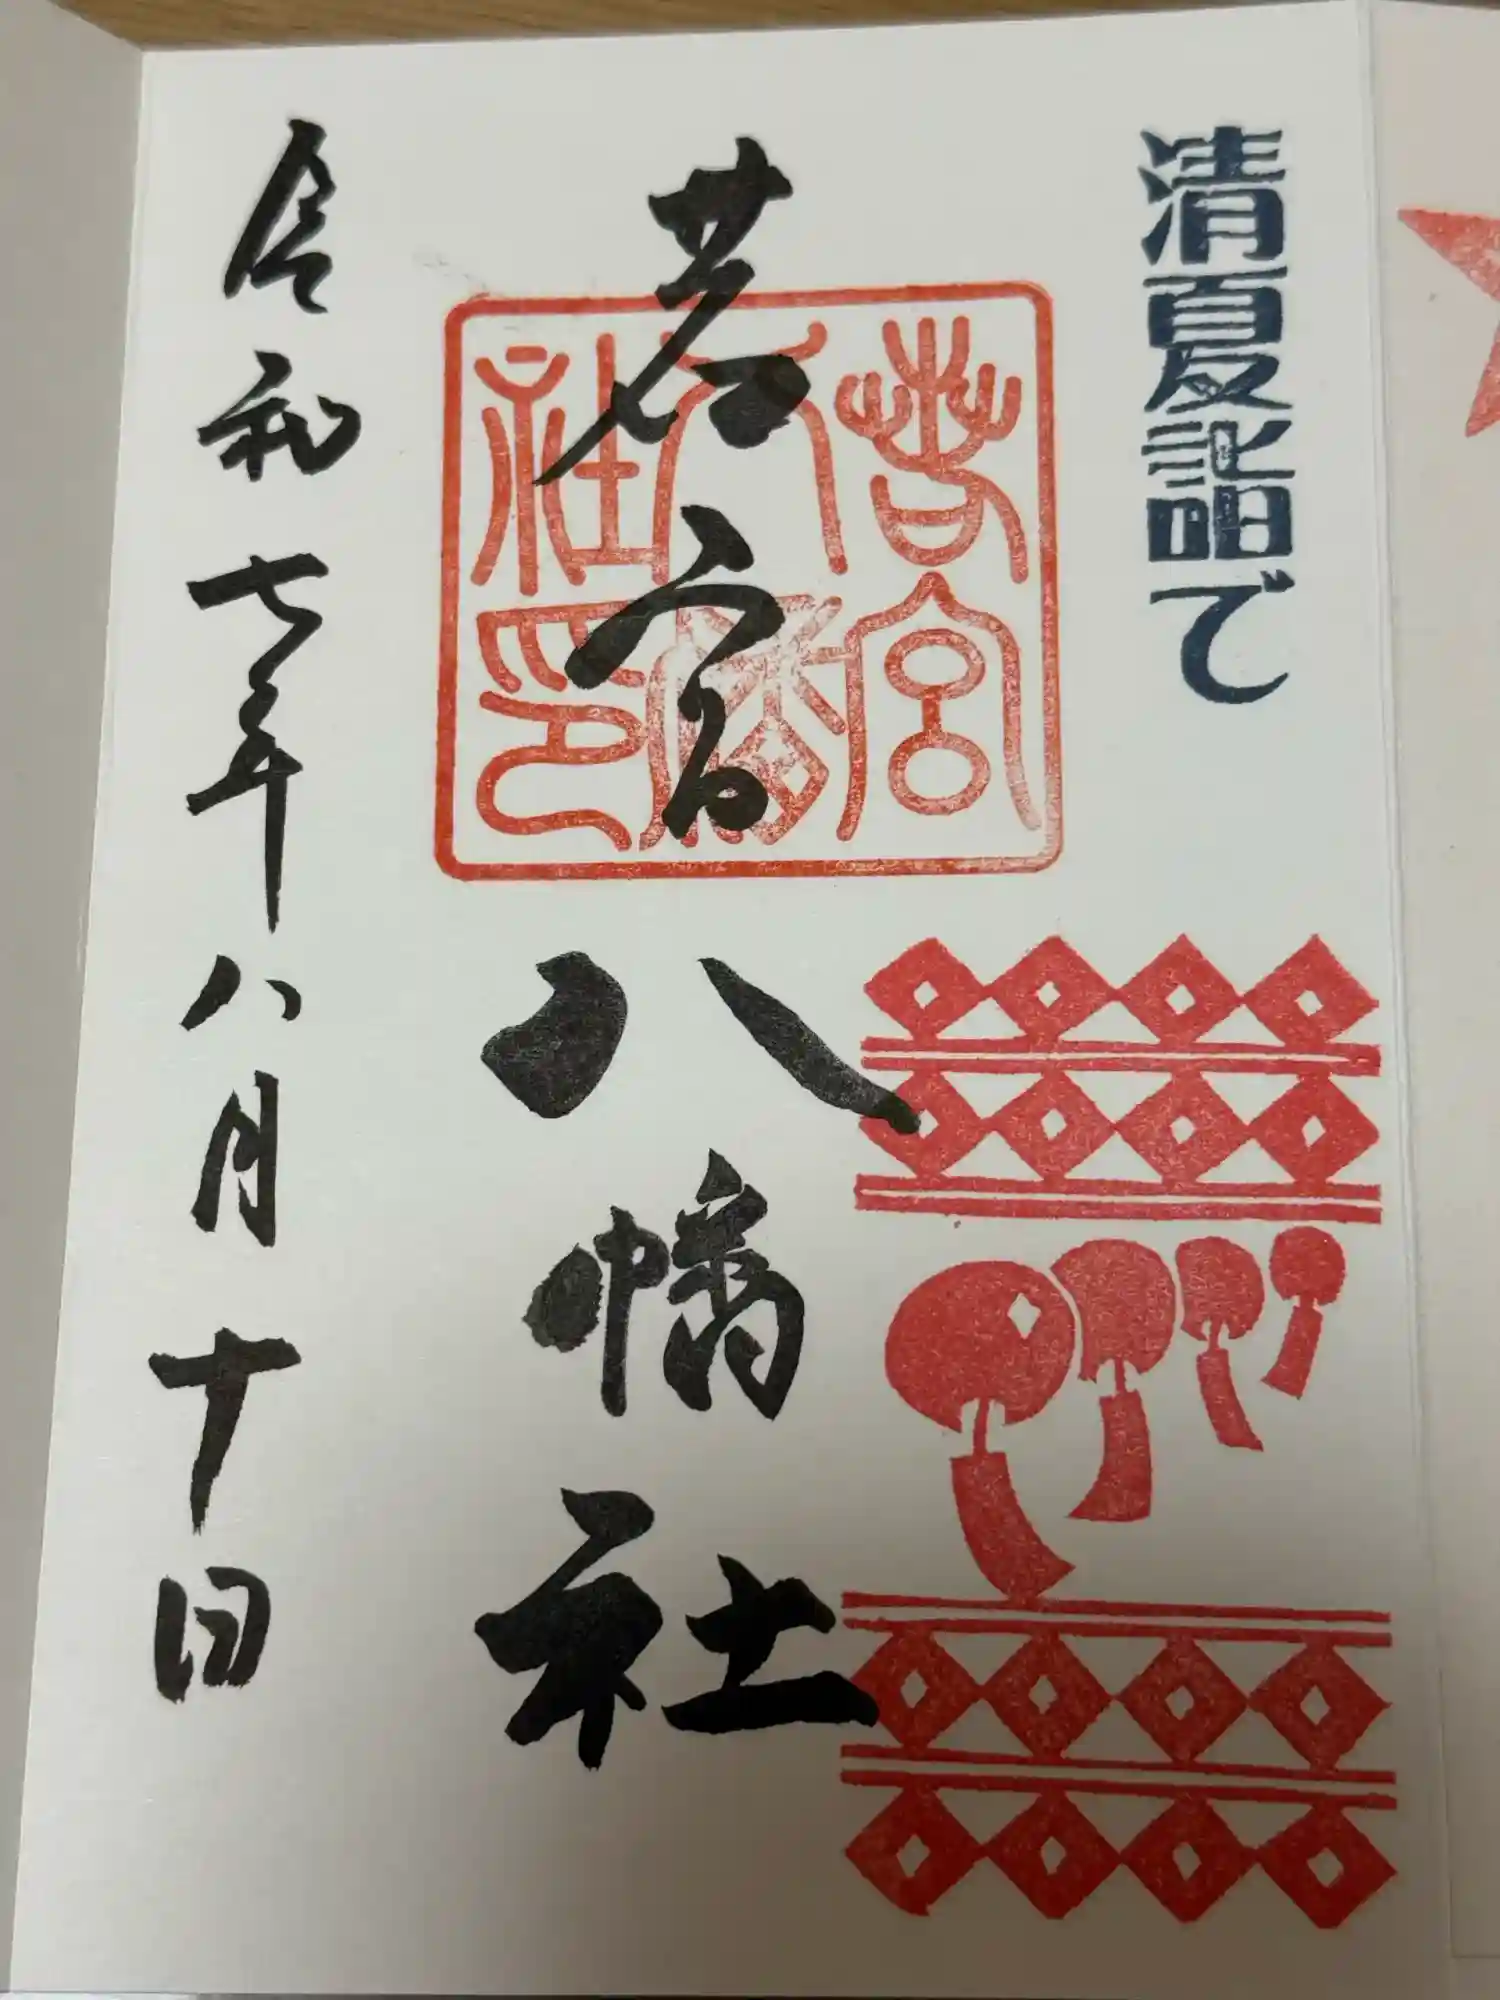 清夏詣で
若宮八幡社
若宮八幡社印
令和七年八月十日